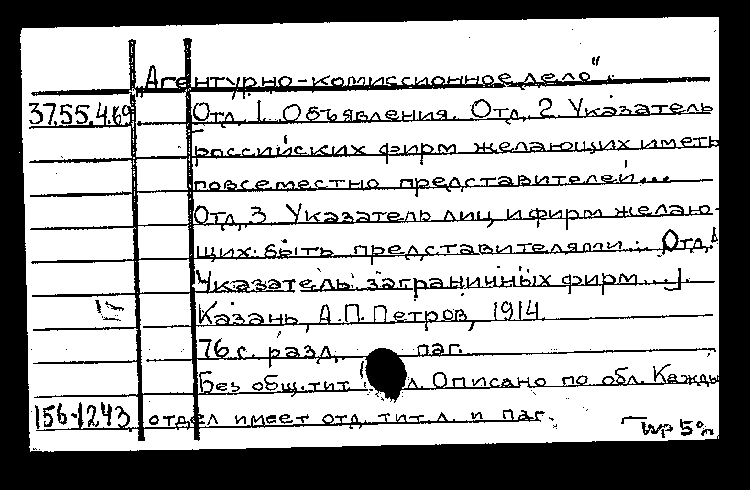 „Агентурно-комиссионное дело".
37.55.4.69. Отд. 1. Объявления. Отд. 2 Указатель
российских фирм желающих иметь
повсеместно представителей...
Отд. 3 Указатель лиц и фирм желаю-
щих быть представителями... Отд.
Указатель заграничных фирм...].
Казань, А.П. Петров, 1914.
76 с. разд. паг.
Без общ. тит л. Описано по обл. Кажды
156-1243 отдел имеет отд. тит. л. и паг.